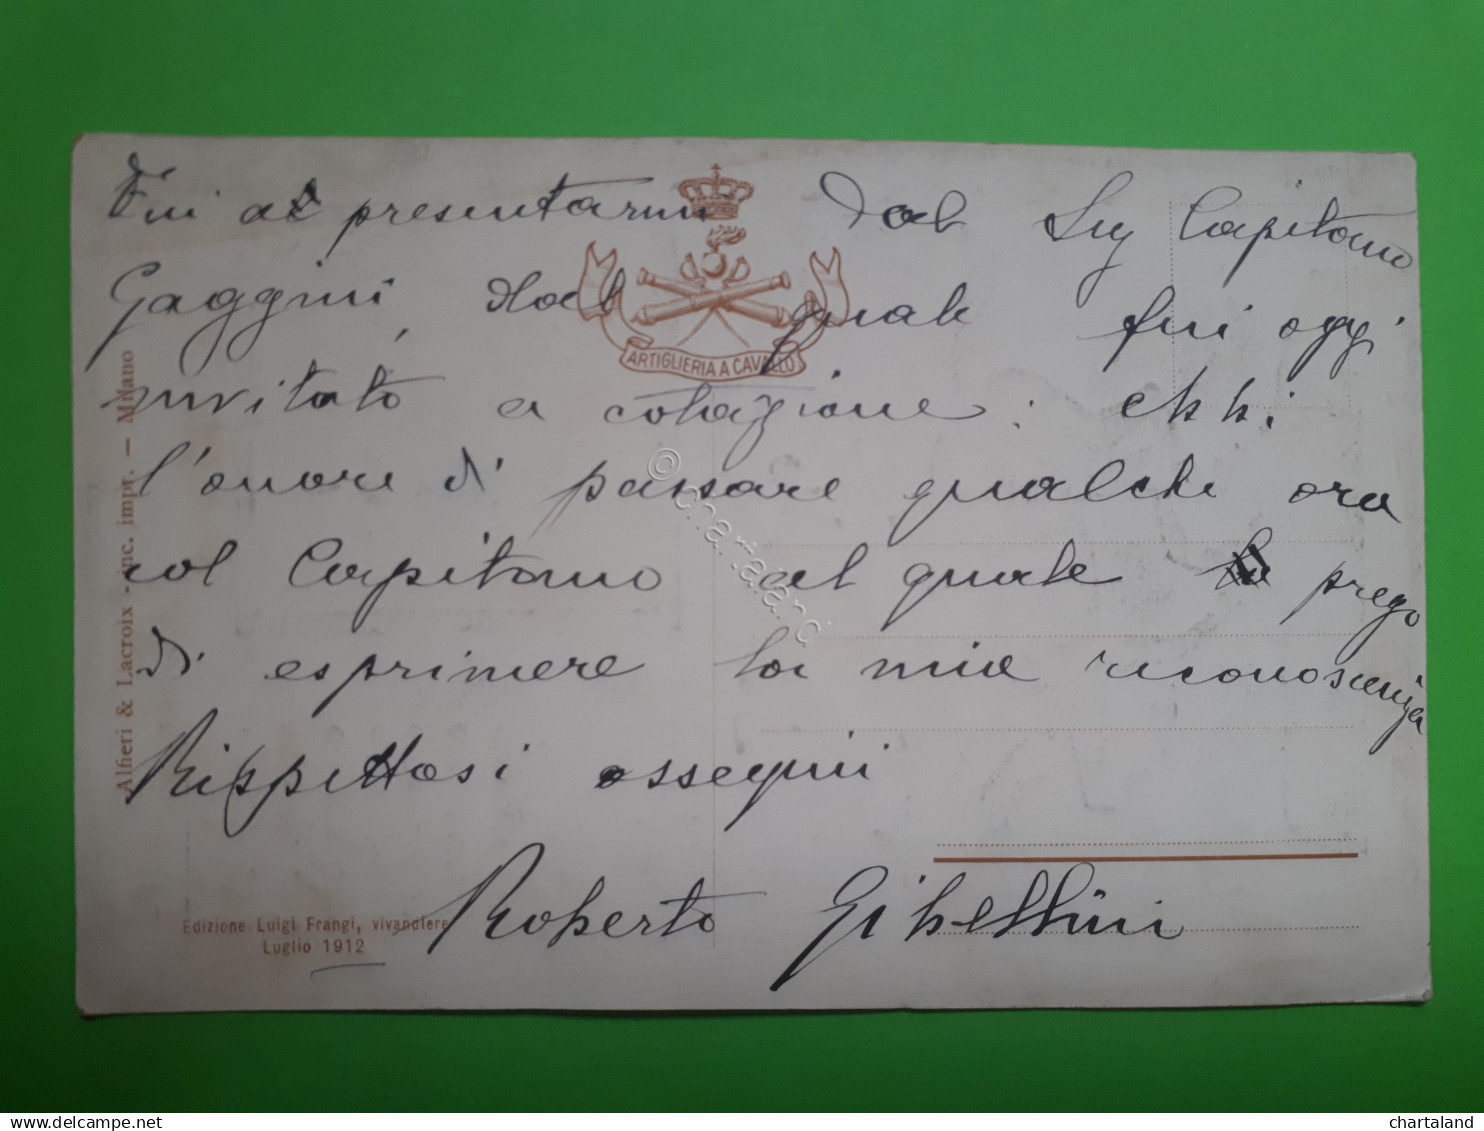 Fui a presentarmi dal Sig Capitano
Gaggini, dal quale fui oggi
invitato a colazione: ebbi
l'onore di passare qualche ora
col Capitano al quale prego
di esprimere la mia riconoscenza
Rispettosi ossequii
Roberto Gibellini
ARTIGLIERIA A CAVALLO
Alfieri & Lacroix - inc. impr. - Milano
Edizione Luigi Frangi, vivandiere
Luglio 1912
© chartaland
chartaland